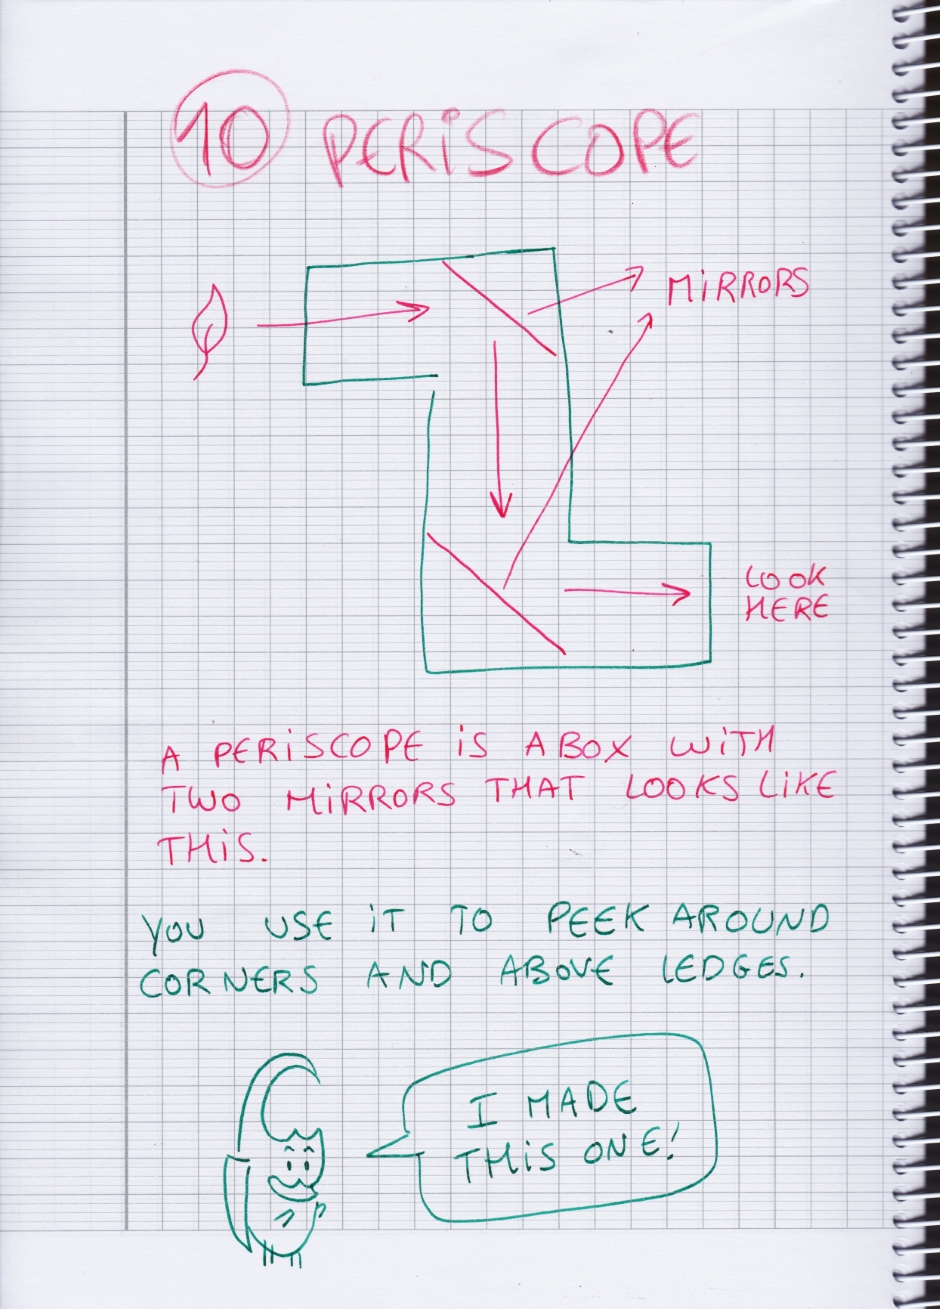 10 PERISCOPE
MIRRORS
LOOK
HERE
A PERISCOPE IS A BOX WITH
TWO MIRRORS THAT LOOKS LIKE
THIS.
YOU USE IT TO PEEK AROUND
CORNERS AND ABOVE LEDGES.
I MADE
THIS ONE!